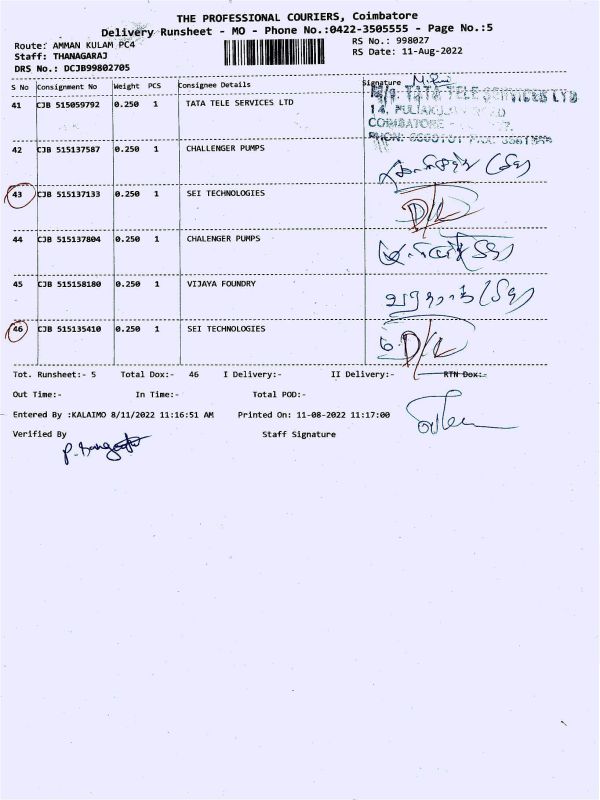 THE PROFESSIONAL COURIERS, Coimbatore
Delivery Runsheet - MO - Phone No.:0422-3505555 - Page No.:5
Route: AMMAN KULAM PC4
RS No.: 998027
Staff: THANAGARAJ
RS Date: 11-Aug-2022
DRS No.: DCJB99802705
S No Consignment No Weight PCS Consignee Details Signature
41 CJB 515059792 0.250 1 TATA TELE SERVICES LTD
M/s. TATA TELE SERVICES LTD
COIMBATORE
42 CJB 515137587 0.250 1 CHALLENGER PUMPS
43 CJB 515137133 0.250 1 SEI TECHNOLOGIES D/L
44 CJB 515137804 0.250 1 CHALENGER PUMPS
45 CJB 515158180 0.250 1 VIJAYA FOUNDRY
46 CJB 515135410 0.250 1 SEI TECHNOLOGIES D/L
Tot. Runsheet:- 5 Total Dox:- 46 I Delivery:- II Delivery:- RTN Dox:-
Out Time:- In Time:- Total POD:-
Entered By :KALAIMO 8/11/2022 11:16:51 AM Printed On: 11-08-2022 11:17:00
Verified By Staff Signature